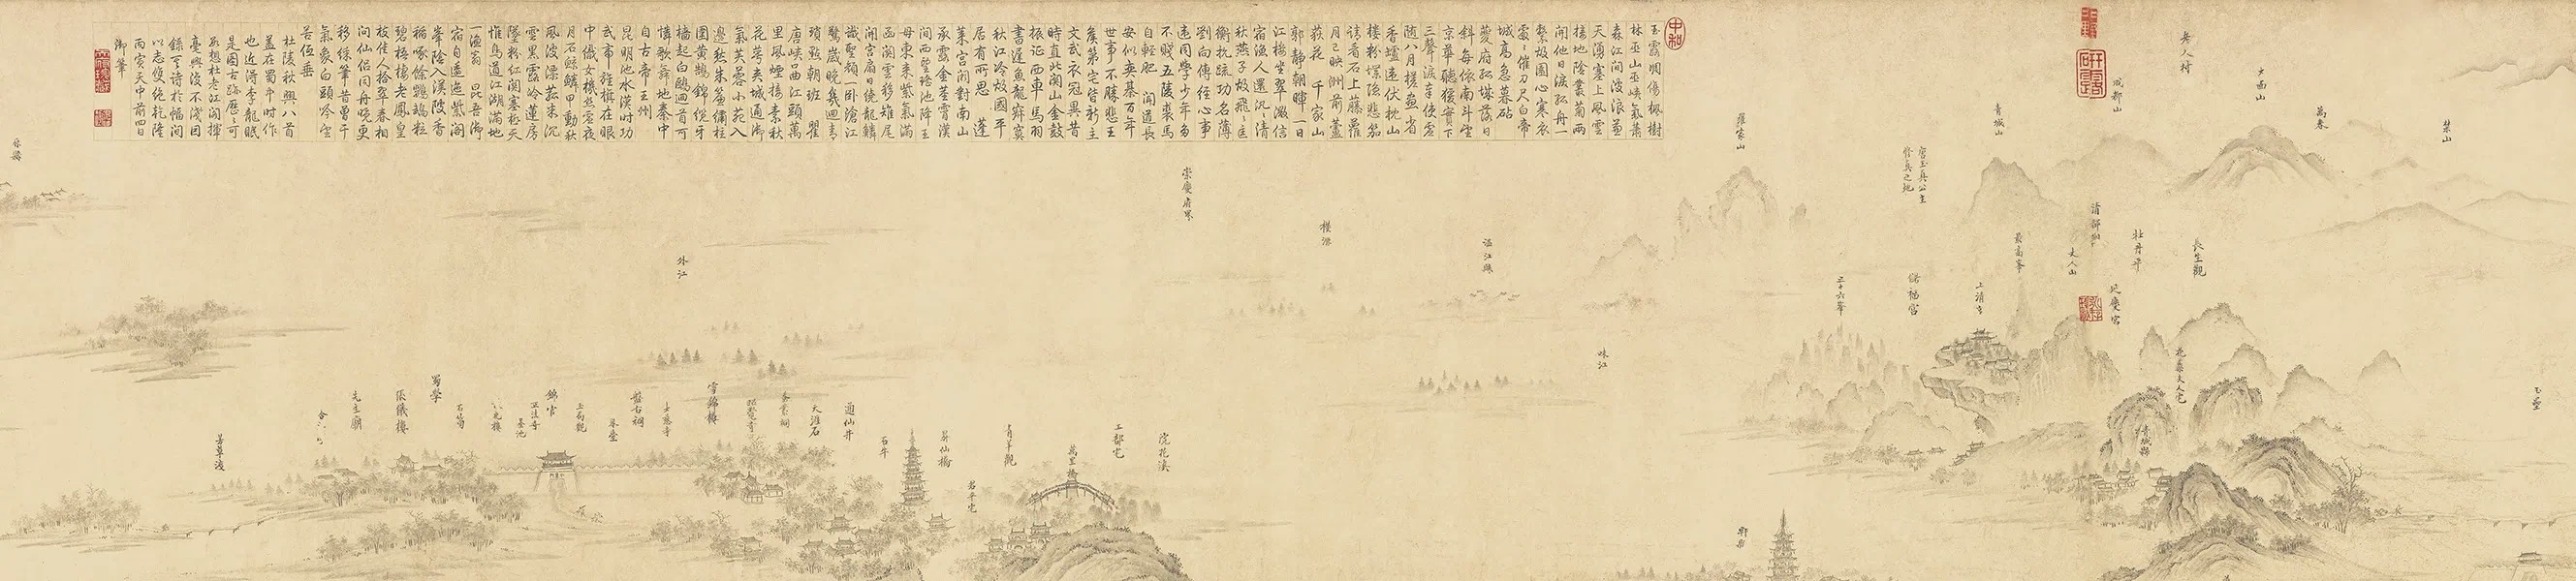 老人村
大面山
萬春
禁山
成都山
青城山
羅家山
唐玉真公主
修真之地
蒲部山
牡丹平
長生觀
最高峯
丈人山
上清宮
三十六峯
儲福宮
延慶宮
花蕊夫人宅
青城縣
玉壘
郫縣
味江
玉露凋傷楓樹
林巫山巫峽氣蕭
森江間波浪兼
天湧塞上風雲
接地陰叢菊兩
開他日淚孤舟一
繫故園心寒衣
處〻催刀尺白帝
城高急暮砧
夔府孤城落日
斜每依南斗望
京華聽猿實下
三聲淚奉使虛
隨八月槎畫省
香爐違伏枕山
樓粉堞隱悲笳
請看石上藤蘿
月已映洲前蘆
荻花 千家山
郭靜朝暉一日
江樓坐翠微信
宿漁人還汎〻清
秋燕子故飛〻匡
衡抗疏功名薄
劉向傳經心事
違同學少年多
不賤五陵裘馬
自輕肥 聞道長
安似奕棊百年
世事不勝悲王
矦第宅皆新主
文武衣冠異昔
時直北關山金鼓
振征西車馬羽
書遲魚龍寂寞
秋江冷故國平
居有所思 蓬
萊宮闕對南山
承露金莖霄漢
間西望瑤池降王
母東來紫氣滿
函關雲移雉尾
開宮扇日繞龍鱗
識聖顏一卧滄江
驚歲晚幾迴青
瑣點朝班 瞿
唐峽口曲江頭萬
里風煙接素秋
花萼夾城通御
氣芙蓉小苑入
邊愁朱簾繡柱
圍黃鵠錦纜牙
檣起白鷗迴首可
憐歌舞地秦中
自古帝王州
昆明池水漢時功
武帝旌旗在眼
中織女機絲虛夜
月石鯨鱗甲動秋
風波漂菰米沉
雲黑露冷蓮房
墜粉紅關塞極天
惟鳥道江湖滿地
一漁翁 昆吾御
宿自逶迤紫閣
峯陰入渼陂香
稻啄餘鸚鵡粒
碧梧棲老鳳皇
枝佳人拾翠春相
問仙侶同舟晚更
移綵筆昔曾干
氣象白頭吟望
苦低垂
杜陵秋興八首
蓋在蜀中時作
也近得李龍眠
是圖古蹟歷〻可
數想杜老江閣揮
毫興復不淺因
錄其詩於幅間
以志雋絕乾隆
丙寅天中前四日
御筆
溫江縣
崇慶府界
外江
浣花溪
工部宅
萬里橋
青羊觀
君平宅
昇仙橋
石牛
通仙井
天涯石
雪錦樓
昭覺寺
大慈寺
盤古祠
玉局觀
錦官
墨池
石筍
蜀學
張儀樓
先主廟
芳草渡